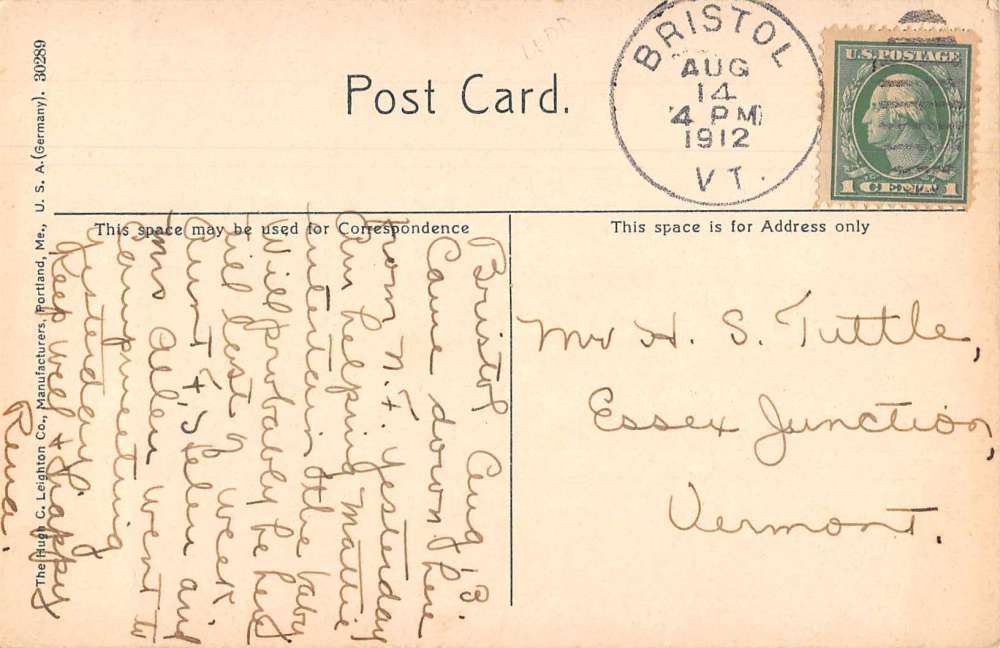 Post Card.
BRISTOL
AUG
14
4 PM
1912
VT.
U.S. POSTAGE
1 CENT 1
This space may be used for Correspondence
This space is for Address only
The Hugh C. Leighton Co., Manufacturers, Portland, Me., U. S. A. (Germany). 30289
Bristol Aug 13.
Came down here
from N. F. yesterday
Am helping Mattie
entertain the baby
Will probably be here
till last of week
Aunt Helen and
Mrs Allen went to
campmeeting
yesterday
Keep well & happy
Rena.
Mr H. S. Tuttle,
Essex Junction,
Vermont.